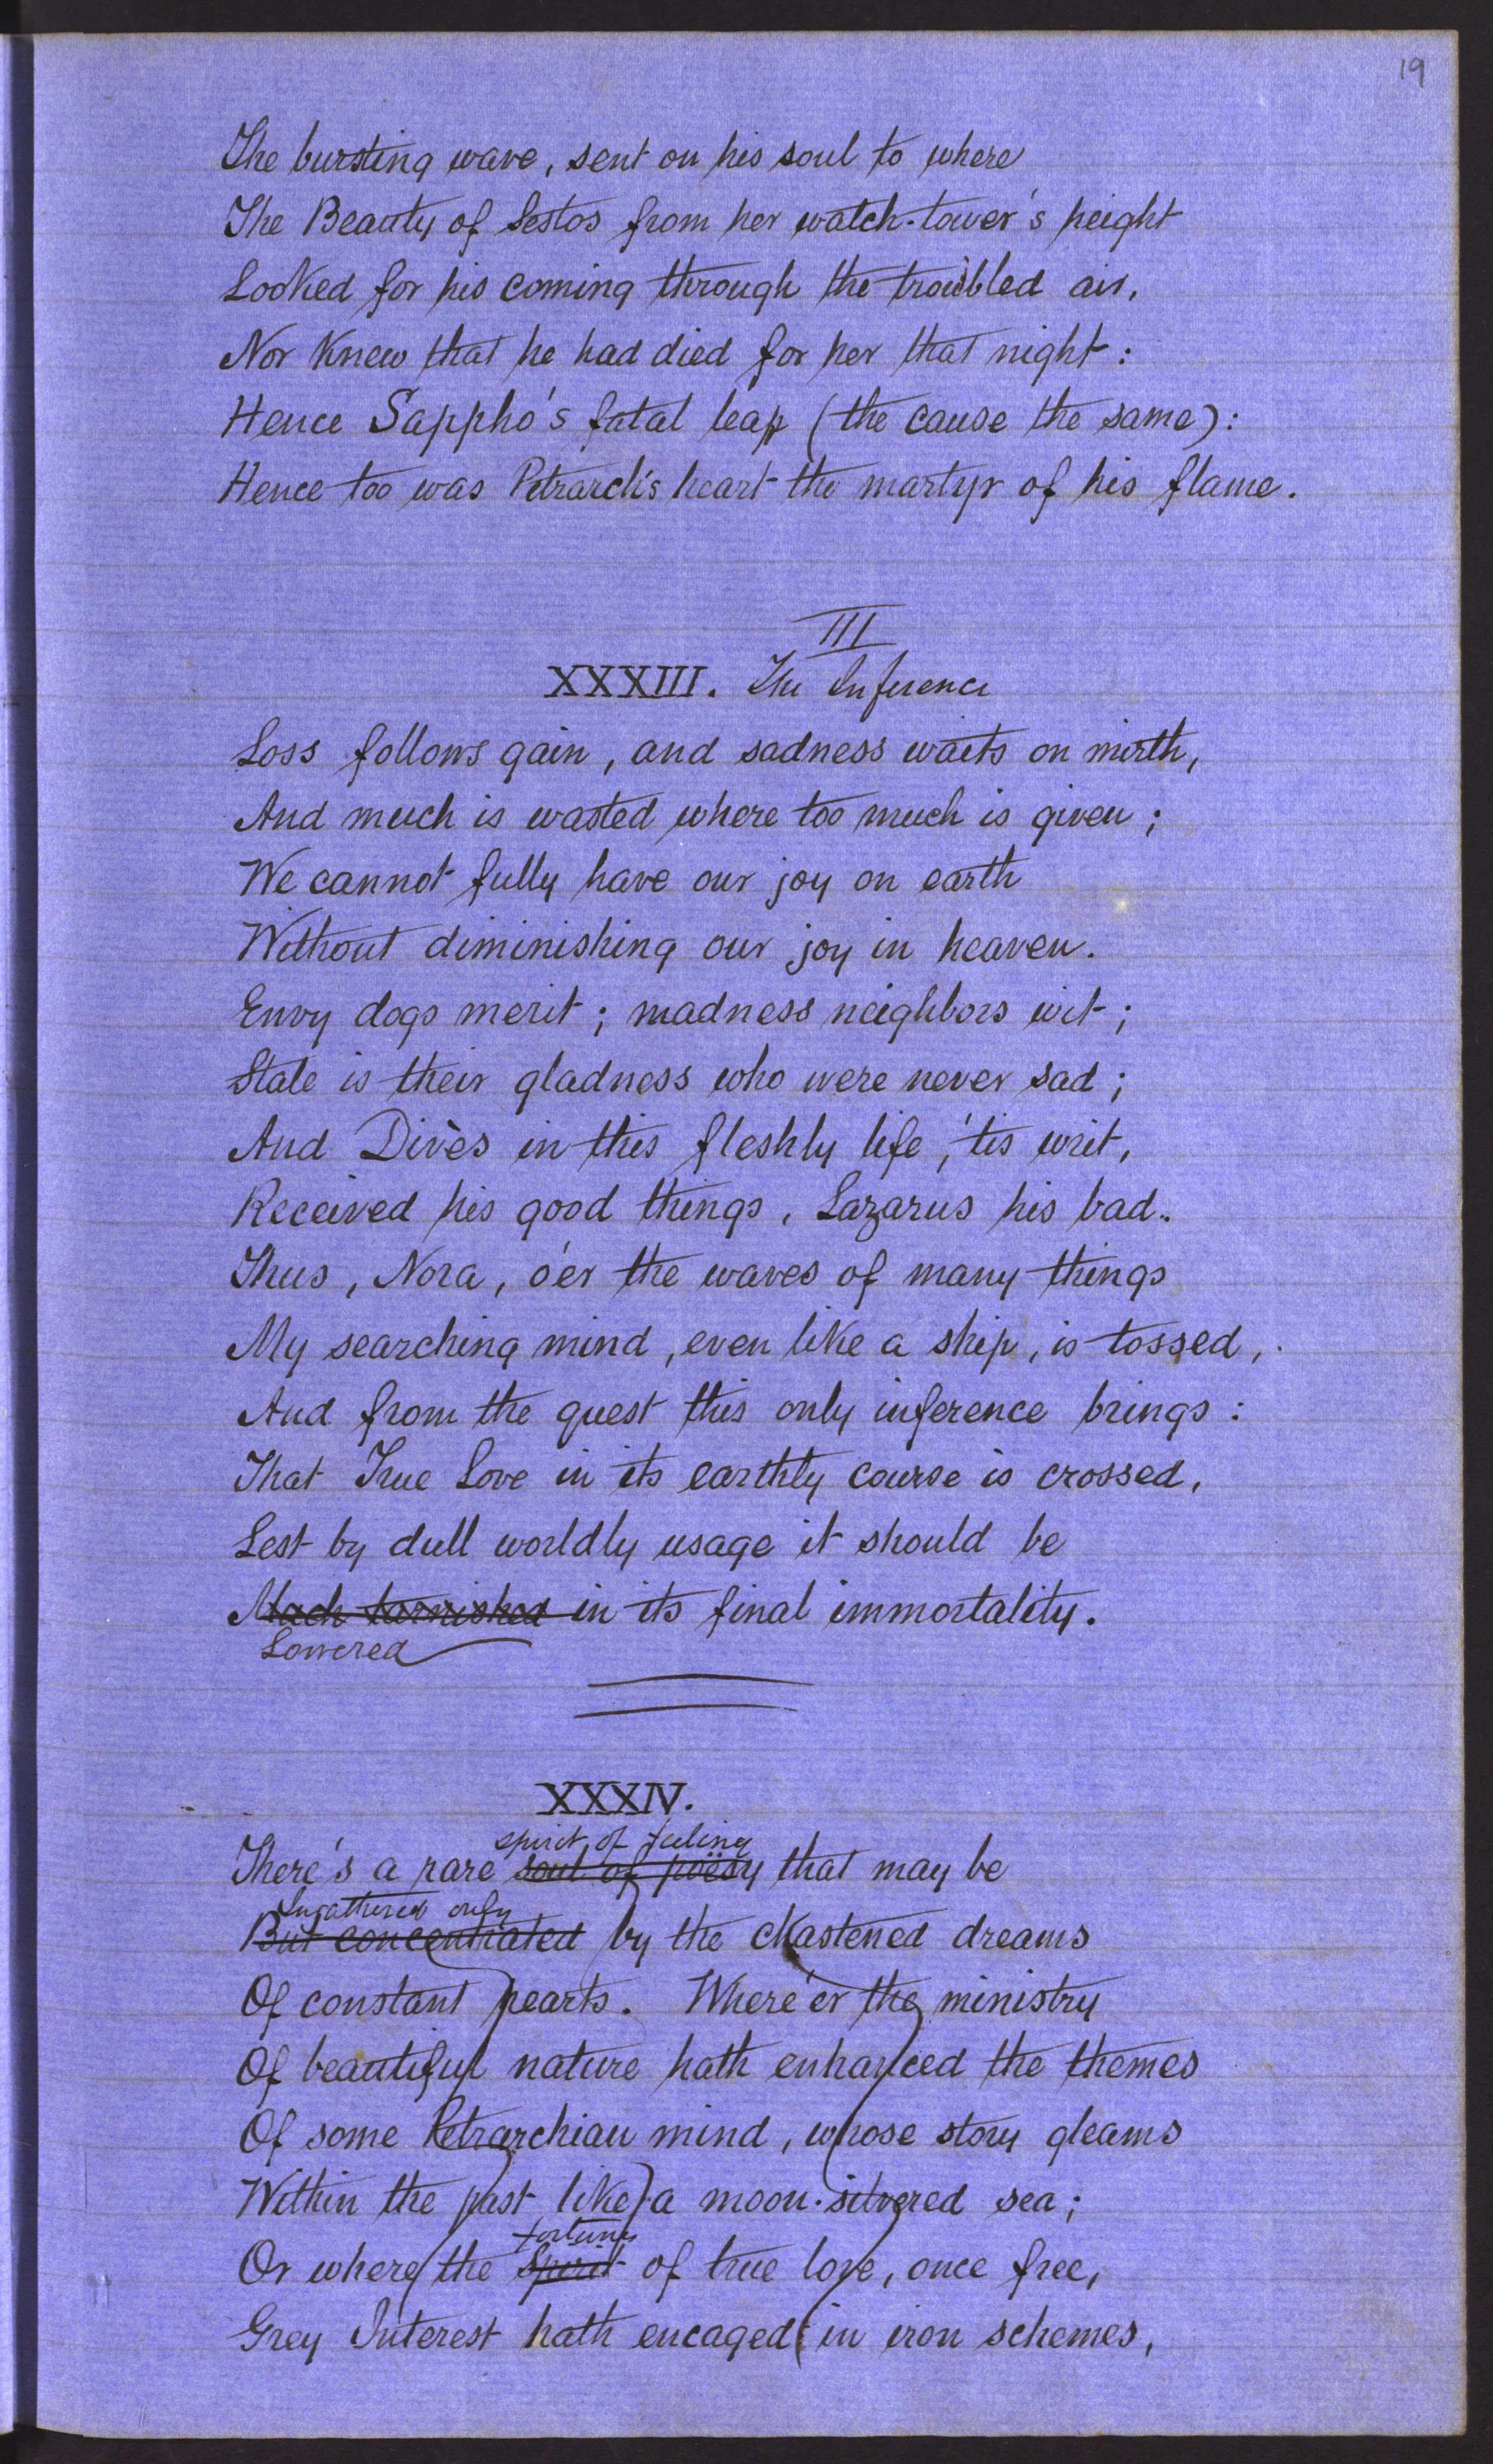 19
The bursting wave, sent on his soul to where
The Beauty of Sestos from her watch-tower's height
Looked for his coming through the troubled air,
Nor knew that he had died for her that night:
Hence Sappho's fatal leap (the cause the same):
Hence too was Petrarch's heart the martyr of his flame.
III
XXXIII. The Inference
Loss follows gain, and sadness waits on mirth,
And much is wasted where too much is given;
We cannot fully have our joy on earth
Without diminishing our joy in heaven.
Envy dogs merit; madness neighbors wit;
Stale is their gladness who were never sad;
And Divès in this fleshly life, 'tis writ,
Received his good things, Lazarus his bad.
Thus, Nora, o'er the waves of many things
My searching mind, even like a ship, is tossed,
And from the quest this only inference brings:
That True Love in its earthly course is crossed,
Lest by dull worldly usage it should be
Much tarnished in its final immortality.
Lowered
XXXIV.
spirit of feeling
There's a rare soul of poësy that may be
Ingathered only
But concentrated by the chastened dreams
Of constant hearts. Where'er the ministry
Of beautiful nature hath enhanced the themes
Of some Petrarchian mind, whose story gleams
Within the past like a moon-silvered sea;
fortune
Or where the spirit of true love, once free,
Grey Interest hath encaged in iron schemes,